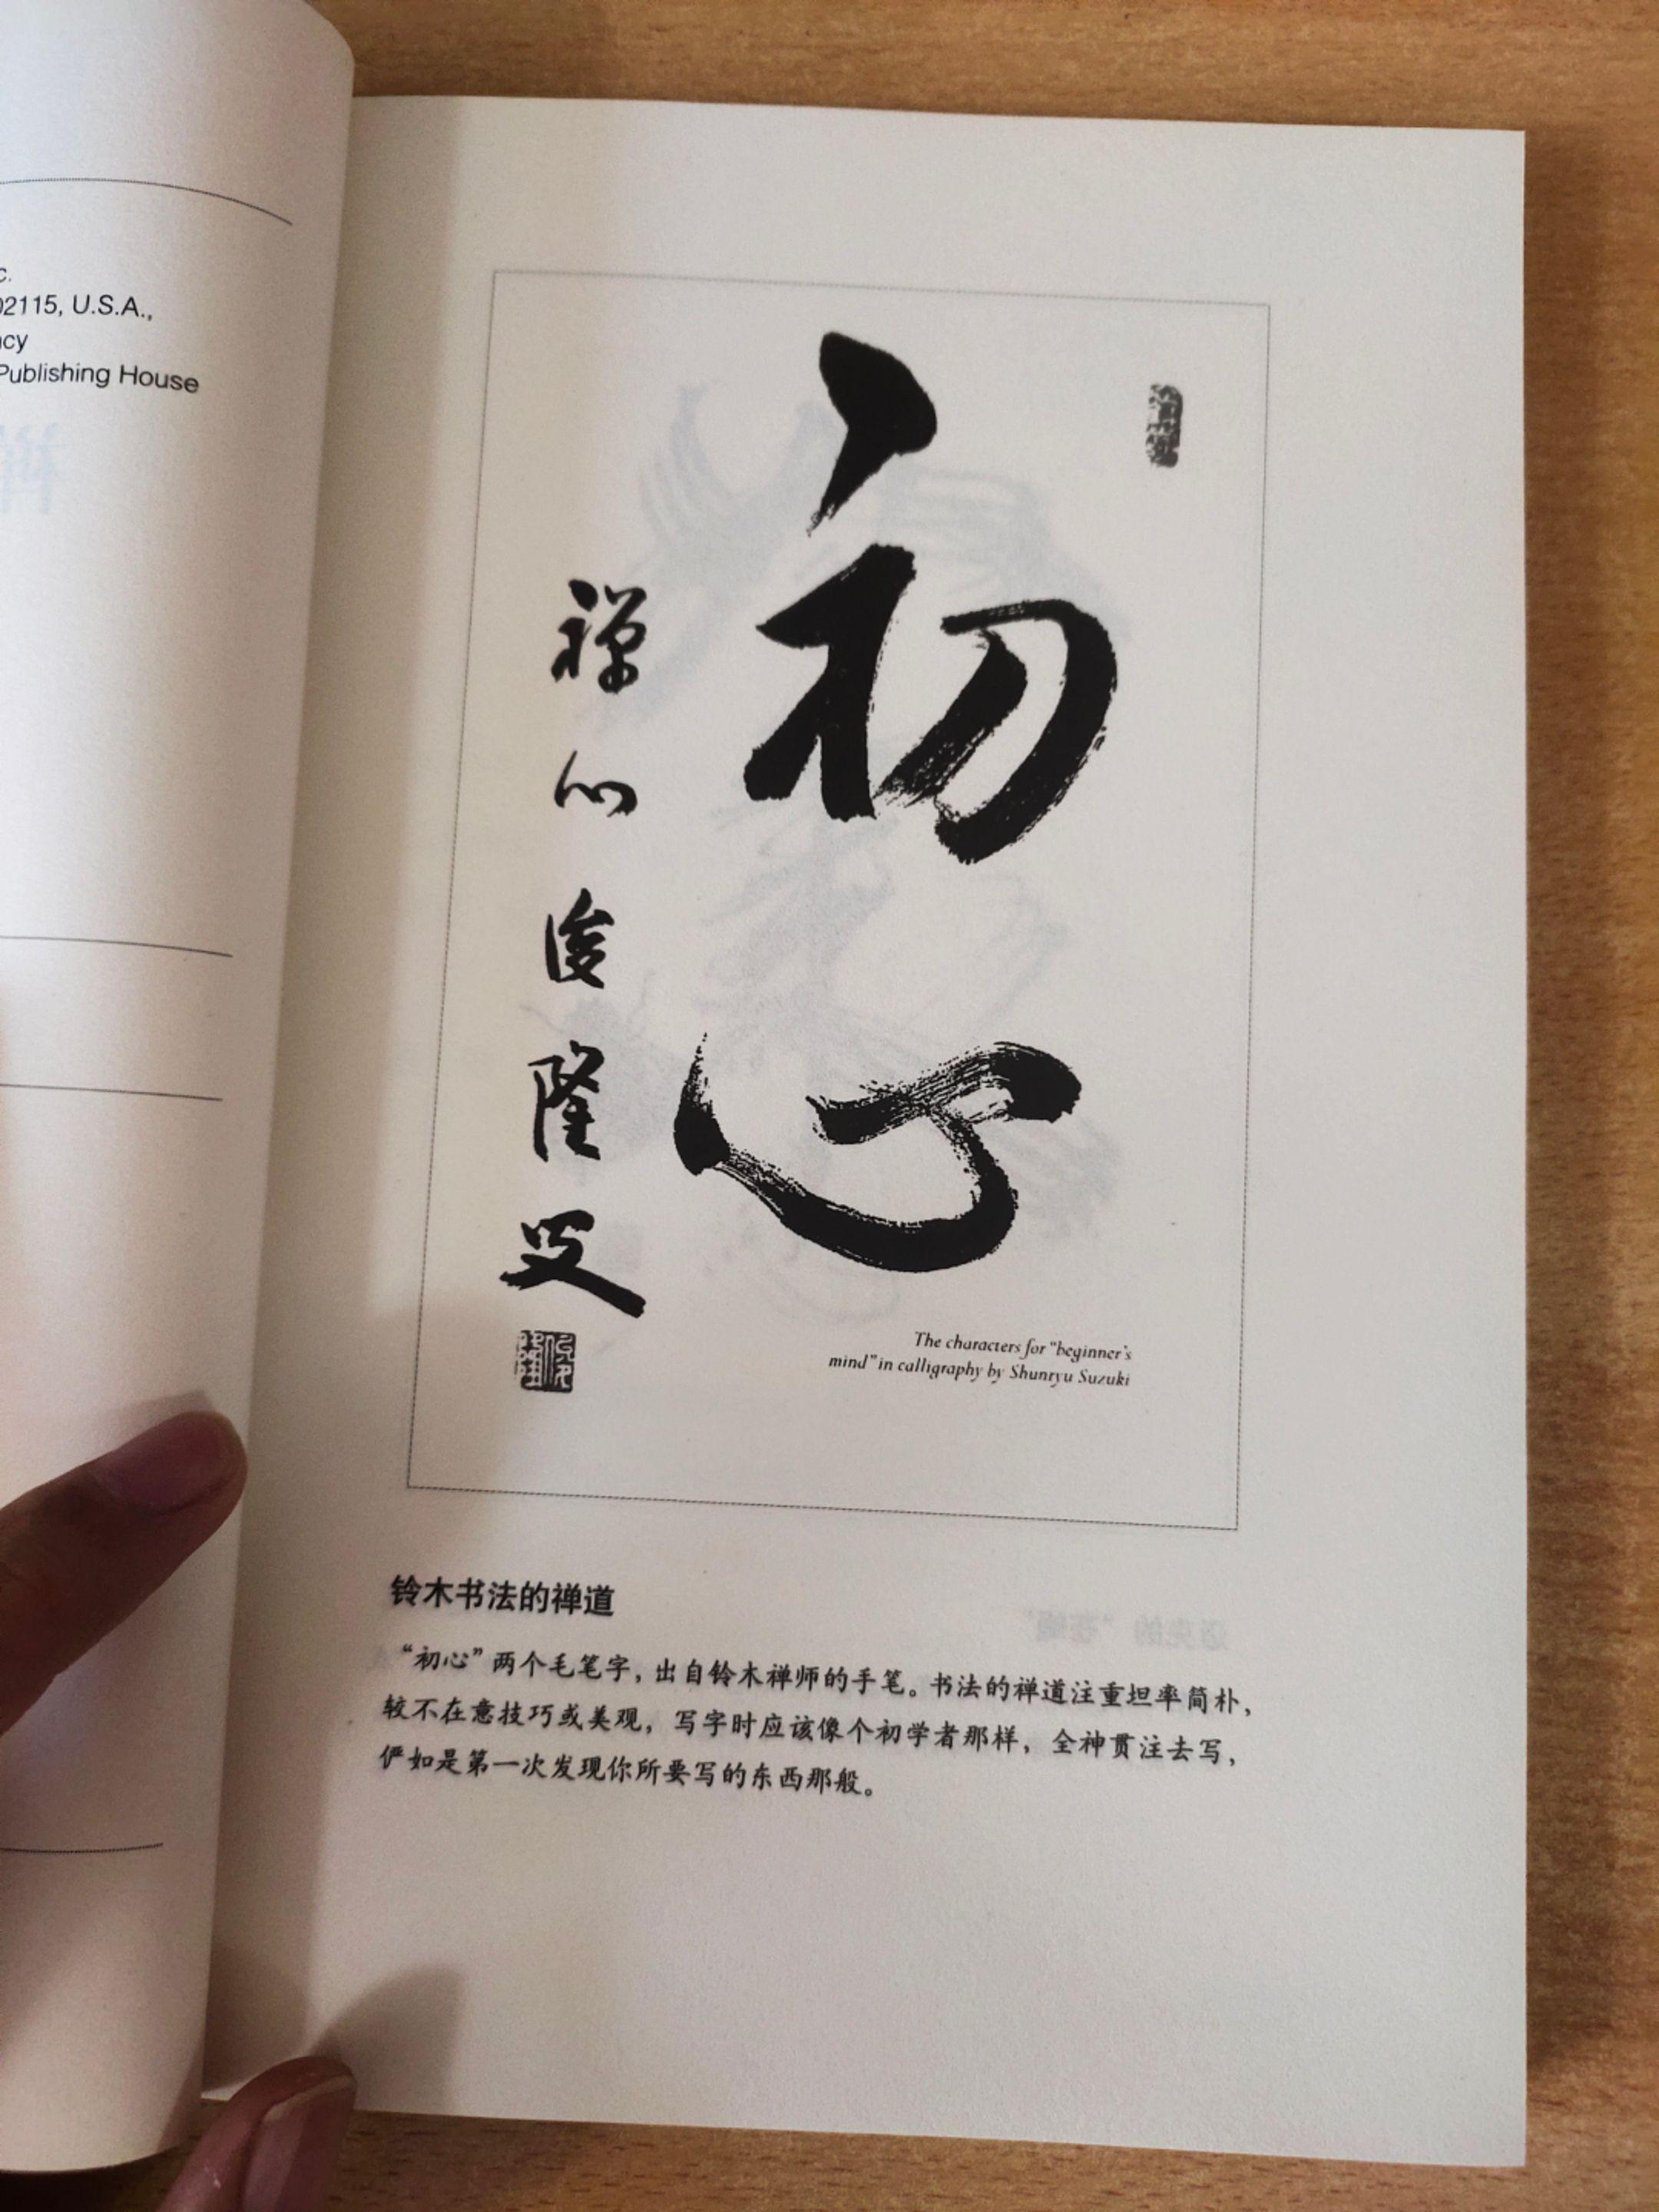 c.
02115, U.S.A.,
ncy
Publishing House
初心
禅心俊隆叟
The characters for "beginner's
mind" in calligraphy by Shunryu Suzuki
铃木书法的禅道
“初心”两个毛笔字，出自铃木禅师的手笔。书法的禅道注重坦率简朴，
较不在意技巧或美观，写字时应该像个初学者那样，全神贯注去写，
俨如是第一次发现你所要写的东西那般。